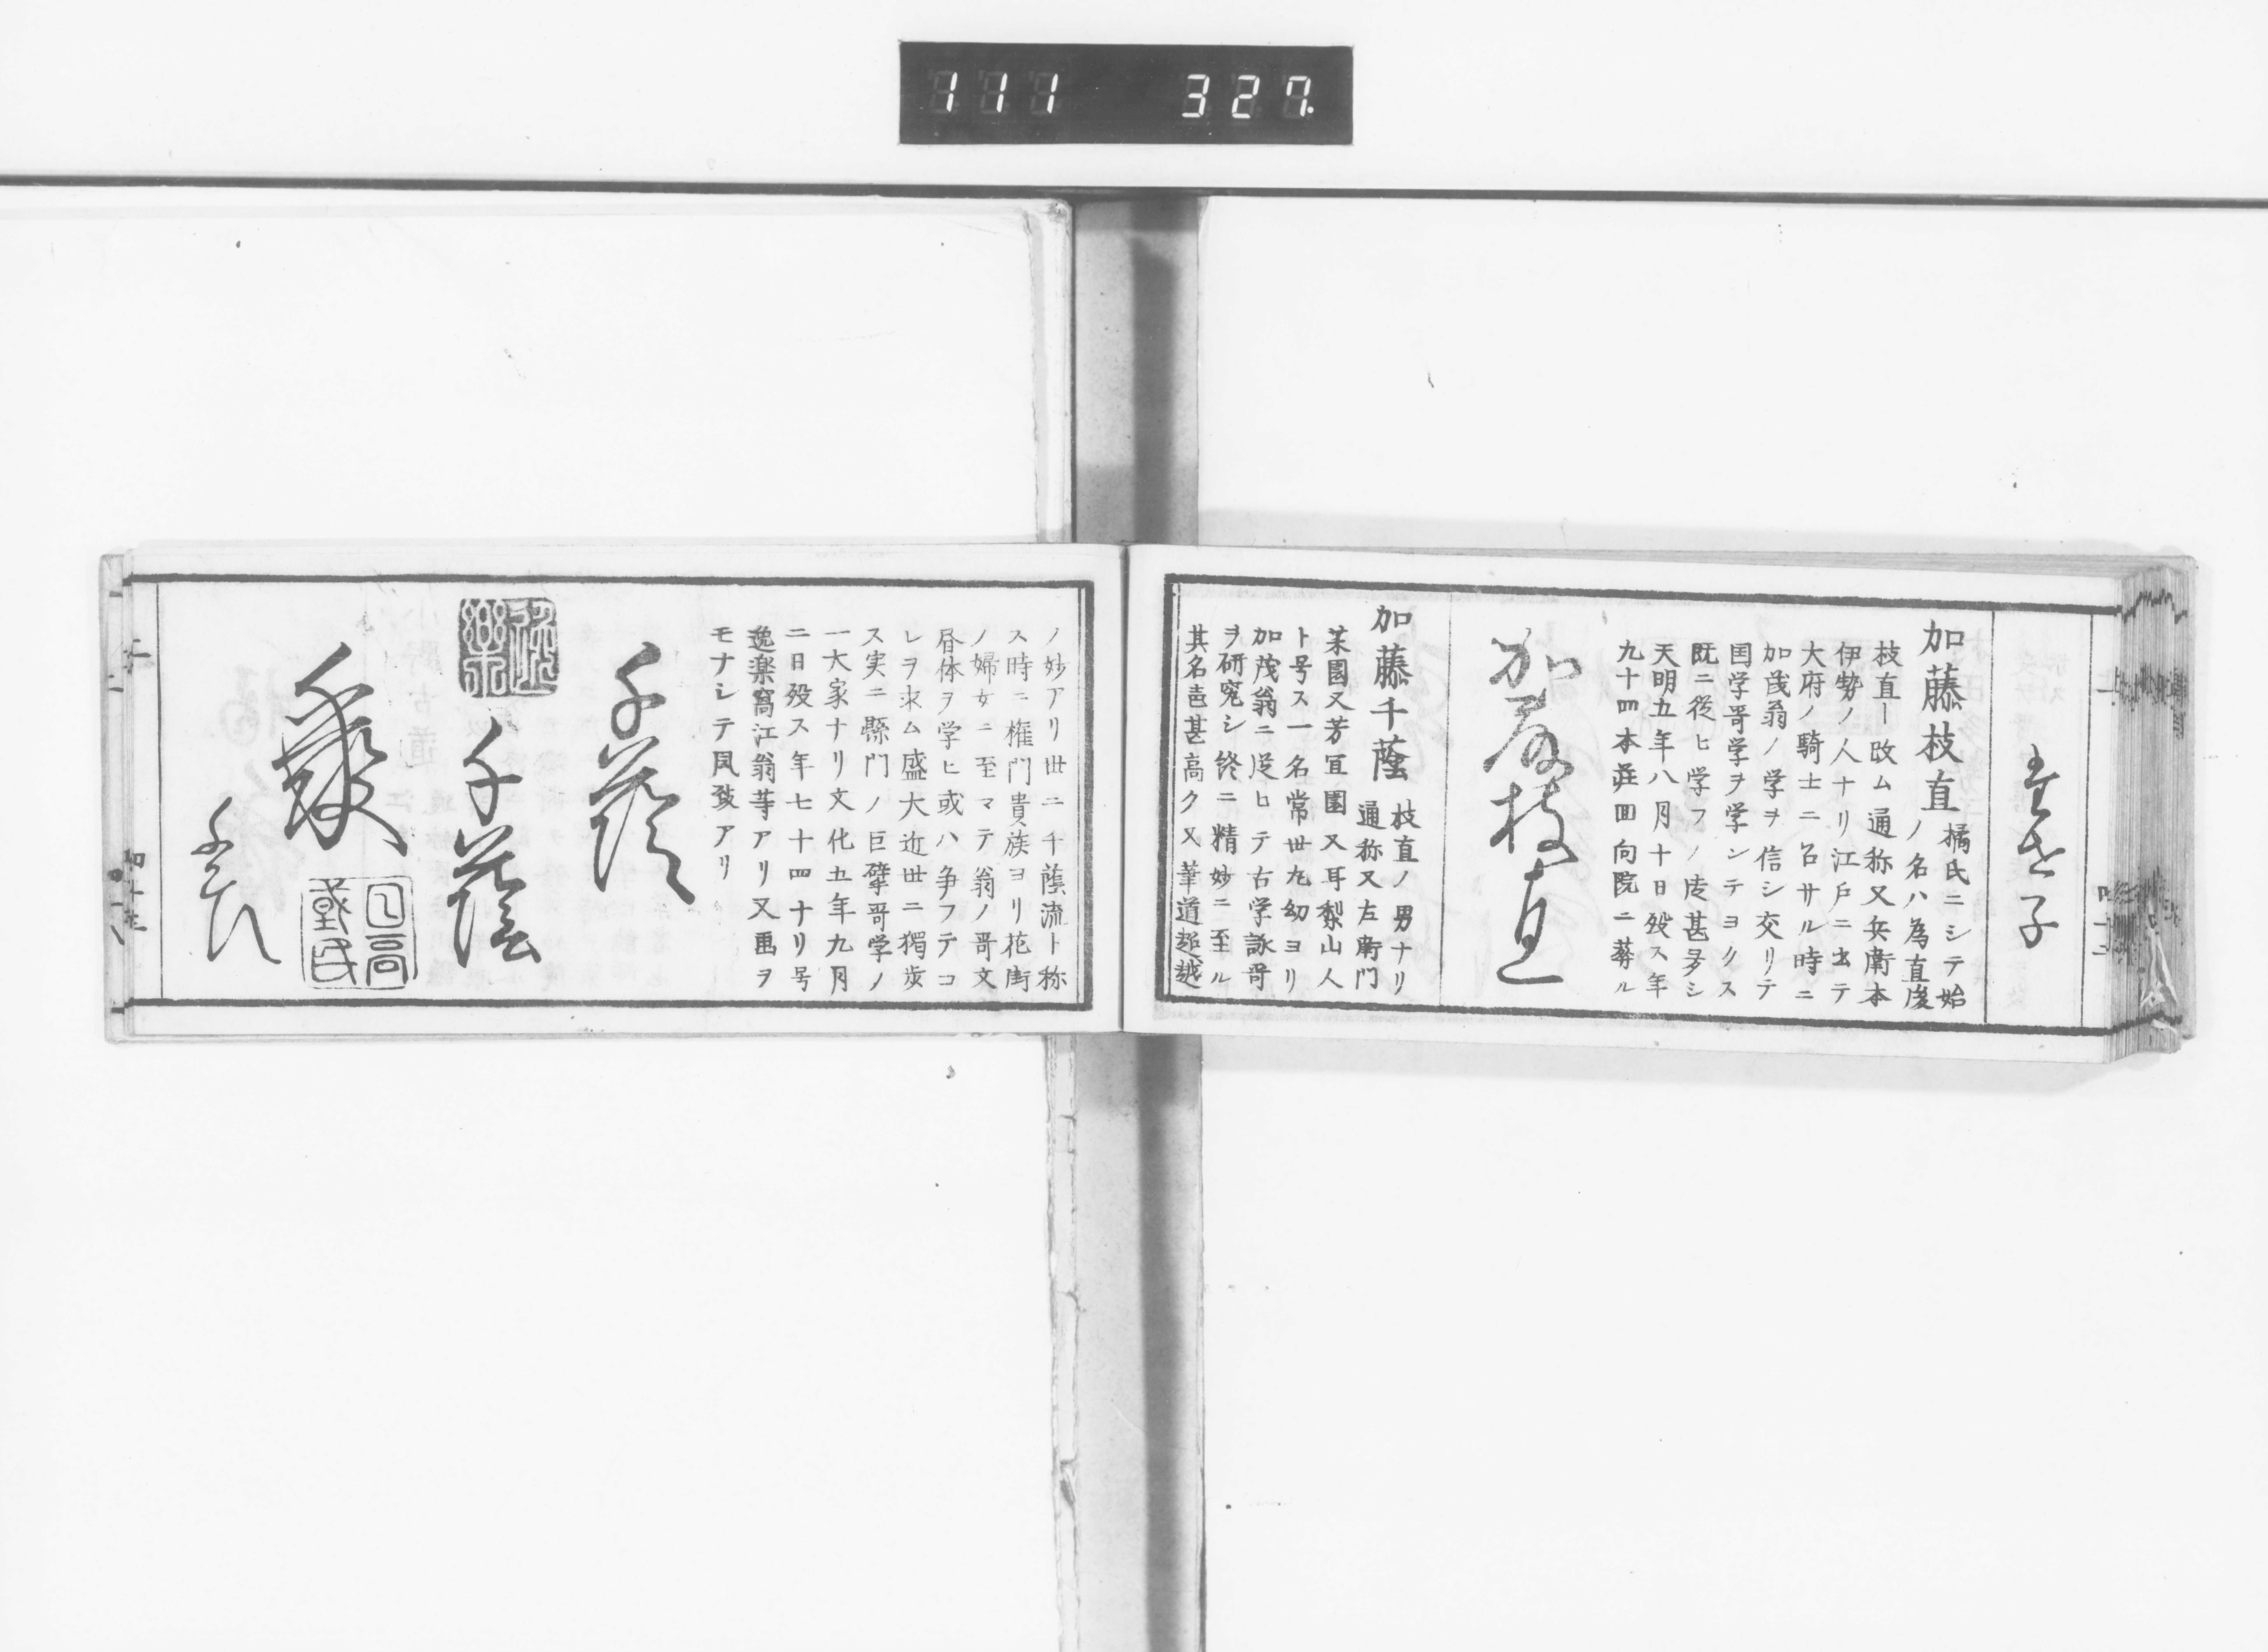 111 327
加藤枝直
橘氏ニシテ始
ノ名ハ為直後
枝直ー改ム通称又兵衛本
伊勢ノ人ナリ江戸ニ出テ
大府ノ騎士ニ召サル時ニ
加茂翁ノ学ヲ信シ交リテ
国学哥学ヲ学シテヨクス
既ニ従ヒ学フノ徒甚多シ
天明五年八月十日歿ス年
九十四本荘回向院ニ葬ル
加藤枝直
加藤千蔭
枝直ノ男ナリ
通称又左衛門
芙園又芳宜園又耳梨山人
ト号ス一名常世丸幼ヨリ
加茂翁ニ従ヒテ古学詠哥
ヲ研究シ終ニ精妙ニ至ル
其名邑甚高ク又筆道超越
ノ妙アリ世ニ千蔭流ト称
ス時ニ権門貴族ヨリ花街
ノ婦女ニ至マテ翁ノ哥文
昼体ヲ学ヒ或ハ争フテコ
レヲ求ム盛大近世ニ獨歩
ス実ニ縣門ノ巨擘哥学ノ
一大家ナリ文化五年九月
二日歿ス年七十四ナリ号
逸楽窩江翁等アリ又画ヲ
モナシテ風致アリ
千蔭
千蔭
千蔭